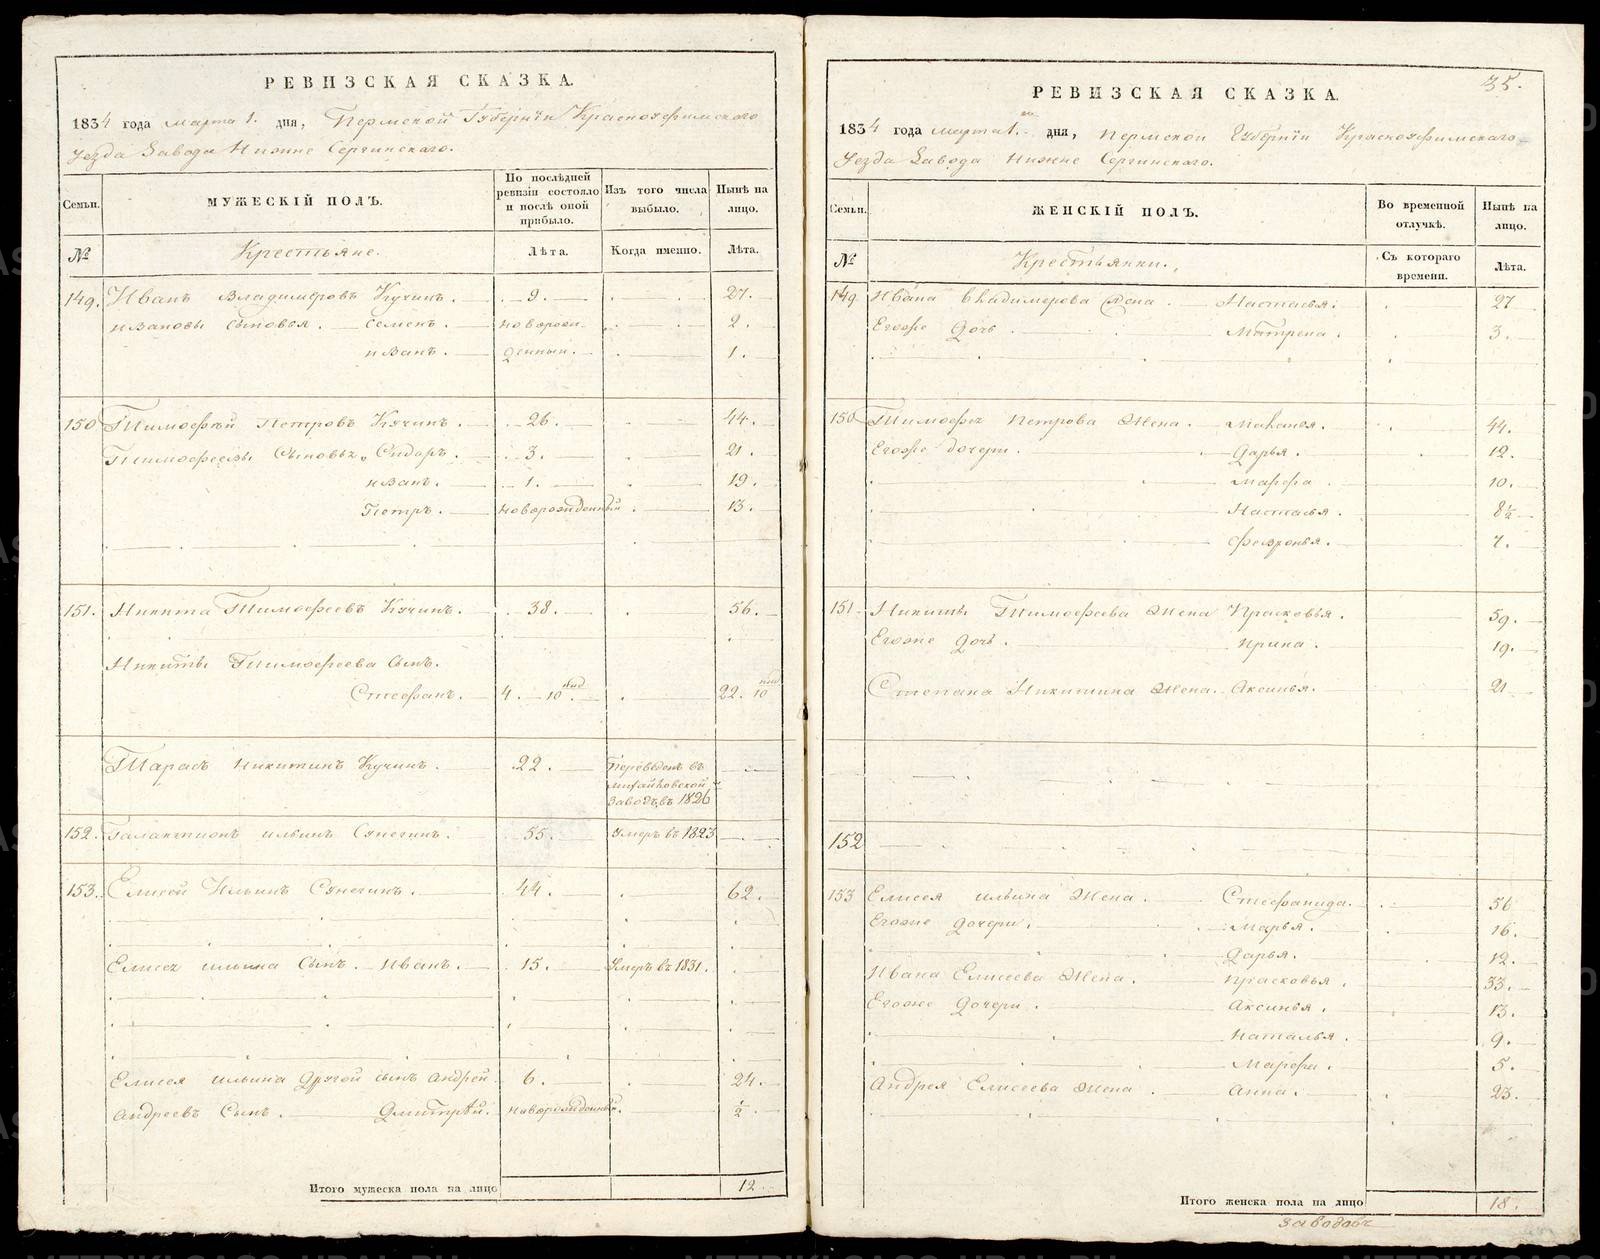 РЕВИЗСКАЯ СКАЗКА.
1834 года марта 1. дня, Пермской Губернїи Красноуфимского
уезда Завода Нижне Сергинскаго.
Семьи.
МУЖЕСКІЙ ПОЛЪ.
По послѣдней ревизіи состояло и послѣ оной прибыло.
Изъ того числа выбыло.
Нынѣ на лицо.
№
Крестьяне.
Лѣта.
Когда именно.
Лѣта.
149. Иванъ Владимеровъ Кучинъ. 9. 27.
ивановы сыновья. Семенъ. новорож- 2.
иванъ. денныи. 1.
150 Тимофѣй Петровъ Кучинъ. 26. 44.
Тимофеевы Сыновья. Сидоръ. 3. 21.
иванъ. 1. 19.
Петръ. новорожденный 13.
151. Никита Тимофеевъ Кучинъ. 38. 56.
Никиты Тимофеева сынъ.
Стефанъ. 4. 10 нед 22. 10 нед
Тарасъ Никитинъ Кучинъ. 22. Переведенъ въ
михайловской
заводъ въ 1826
152. Галактионъ ильинъ Сунегинъ. 55. Умеръ въ 1823
153. Елисей Ильинъ Сунегинъ. 44. 62.
Елисея ильина Сынъ. Иванъ. 15. Умеръ въ 1831.
Елисея ильина Другой сынъ Андрей 6. 24.
Андреевъ Сынъ. Дмитрѣй. новорожденный. 1/2.
Итого мужеска пола на лицо 12.
35.
РЕВИЗСКАЯ СКАЗКА.
1834 года марта 1. го дня, Пермской Губернїи Красноуфимскаго
Уезда Завода Нижне Сергинскаго.
Семьи.
ЖЕНСКІЙ ПОЛЪ.
Во временной отлучкѣ.
Нынѣ на лицо.
№
Крестьянки.
Съ котораго времени.
Лѣта.
149 Ивана владимерова Жена Настасья. 27
Егоже Дочь Матрена. 3.
150 Тимофея Петрова Жена. Маланья. 44.
Егоже дочери. Дарья. 12.
Марфа. 10.
Настасья. 8 1/2
Февронья. 7.
151 Никиты Тимофеева Жена Прасковья. 59.
Егоже Дочь. Ирина. 19.
Степана Никитина Жена. Аксинья. 21
152
153 Елисея ильина Жена. Стефанида. 56
Егоже Дочери. Марья. 16.
Дарья. 12.
Ивана Елисеева Жена. Прасковья. 33.
Егоже Дочери. Аксинья. 13.
Наталья. 9.
Марфа. 5.
Андрея Елисеева Жена Анна. 23.
Итого женска пола на лицо 18.
заводовъ